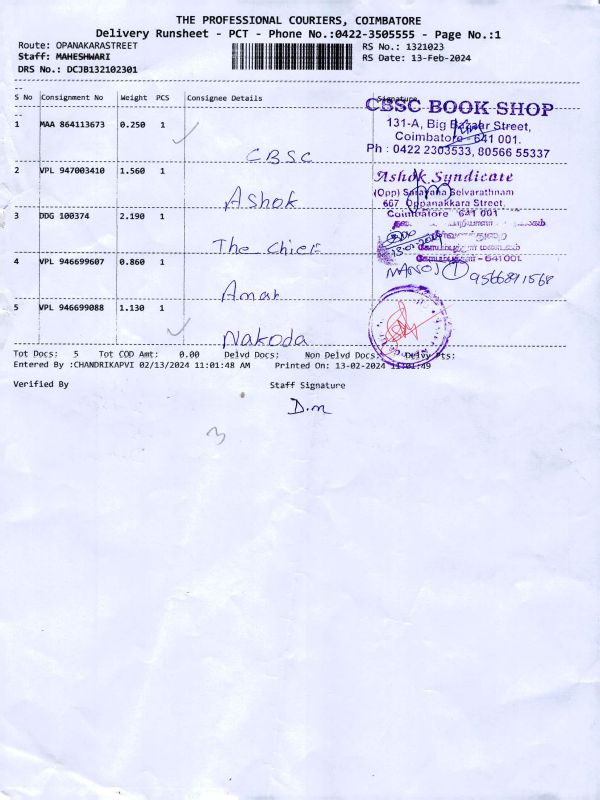 THE PROFESSIONAL COURIERS, COIMBATORE
Delivery Runsheet - PCT - Phone No.:0422-3505555 - Page No.:1
Route: OPANAKARASTREET
RS No.: 1321023
Staff: MAHESHWARI
RS Date: 13-Feb-2024
DRS No.: DCJB132102301
S No Consignment No Weight PCS Consignee Details Signature
1 MAA 864113673 0.250 1 CBSC
CBSC BOOK SHOP
131-A, Big Bazaar Street,
Coimbatore - 641 001.
Ph : 0422 2303533, 80566 55337
2 VPL 947003410 1.560 1 Ashok
Ashok Syndicate
(Opp) Sarayana Selvarathnam
667 Oppanakkara Street,
Coimbatore 641 001
3 DDG 100374 2.190 1 The Chief
கோயம்புத்தூர் மண்டலம்
கோயம்புத்தூர் - 641001
4 VPL 946699607 0.860 1 Amar
MANOJ 9566891568
5 VPL 946699088 1.130 1 Nakoda
Tot Docs: 5 Tot COD Amt: 0.00 Delvd Docs: Non Delvd Docs: Delvy Pts:
Entered By :CHANDRIKAPVI 02/13/2024 11:01:48 AM Printed On: 13-02-2024 11:01:49
Verified By Staff Signature
D.m
3